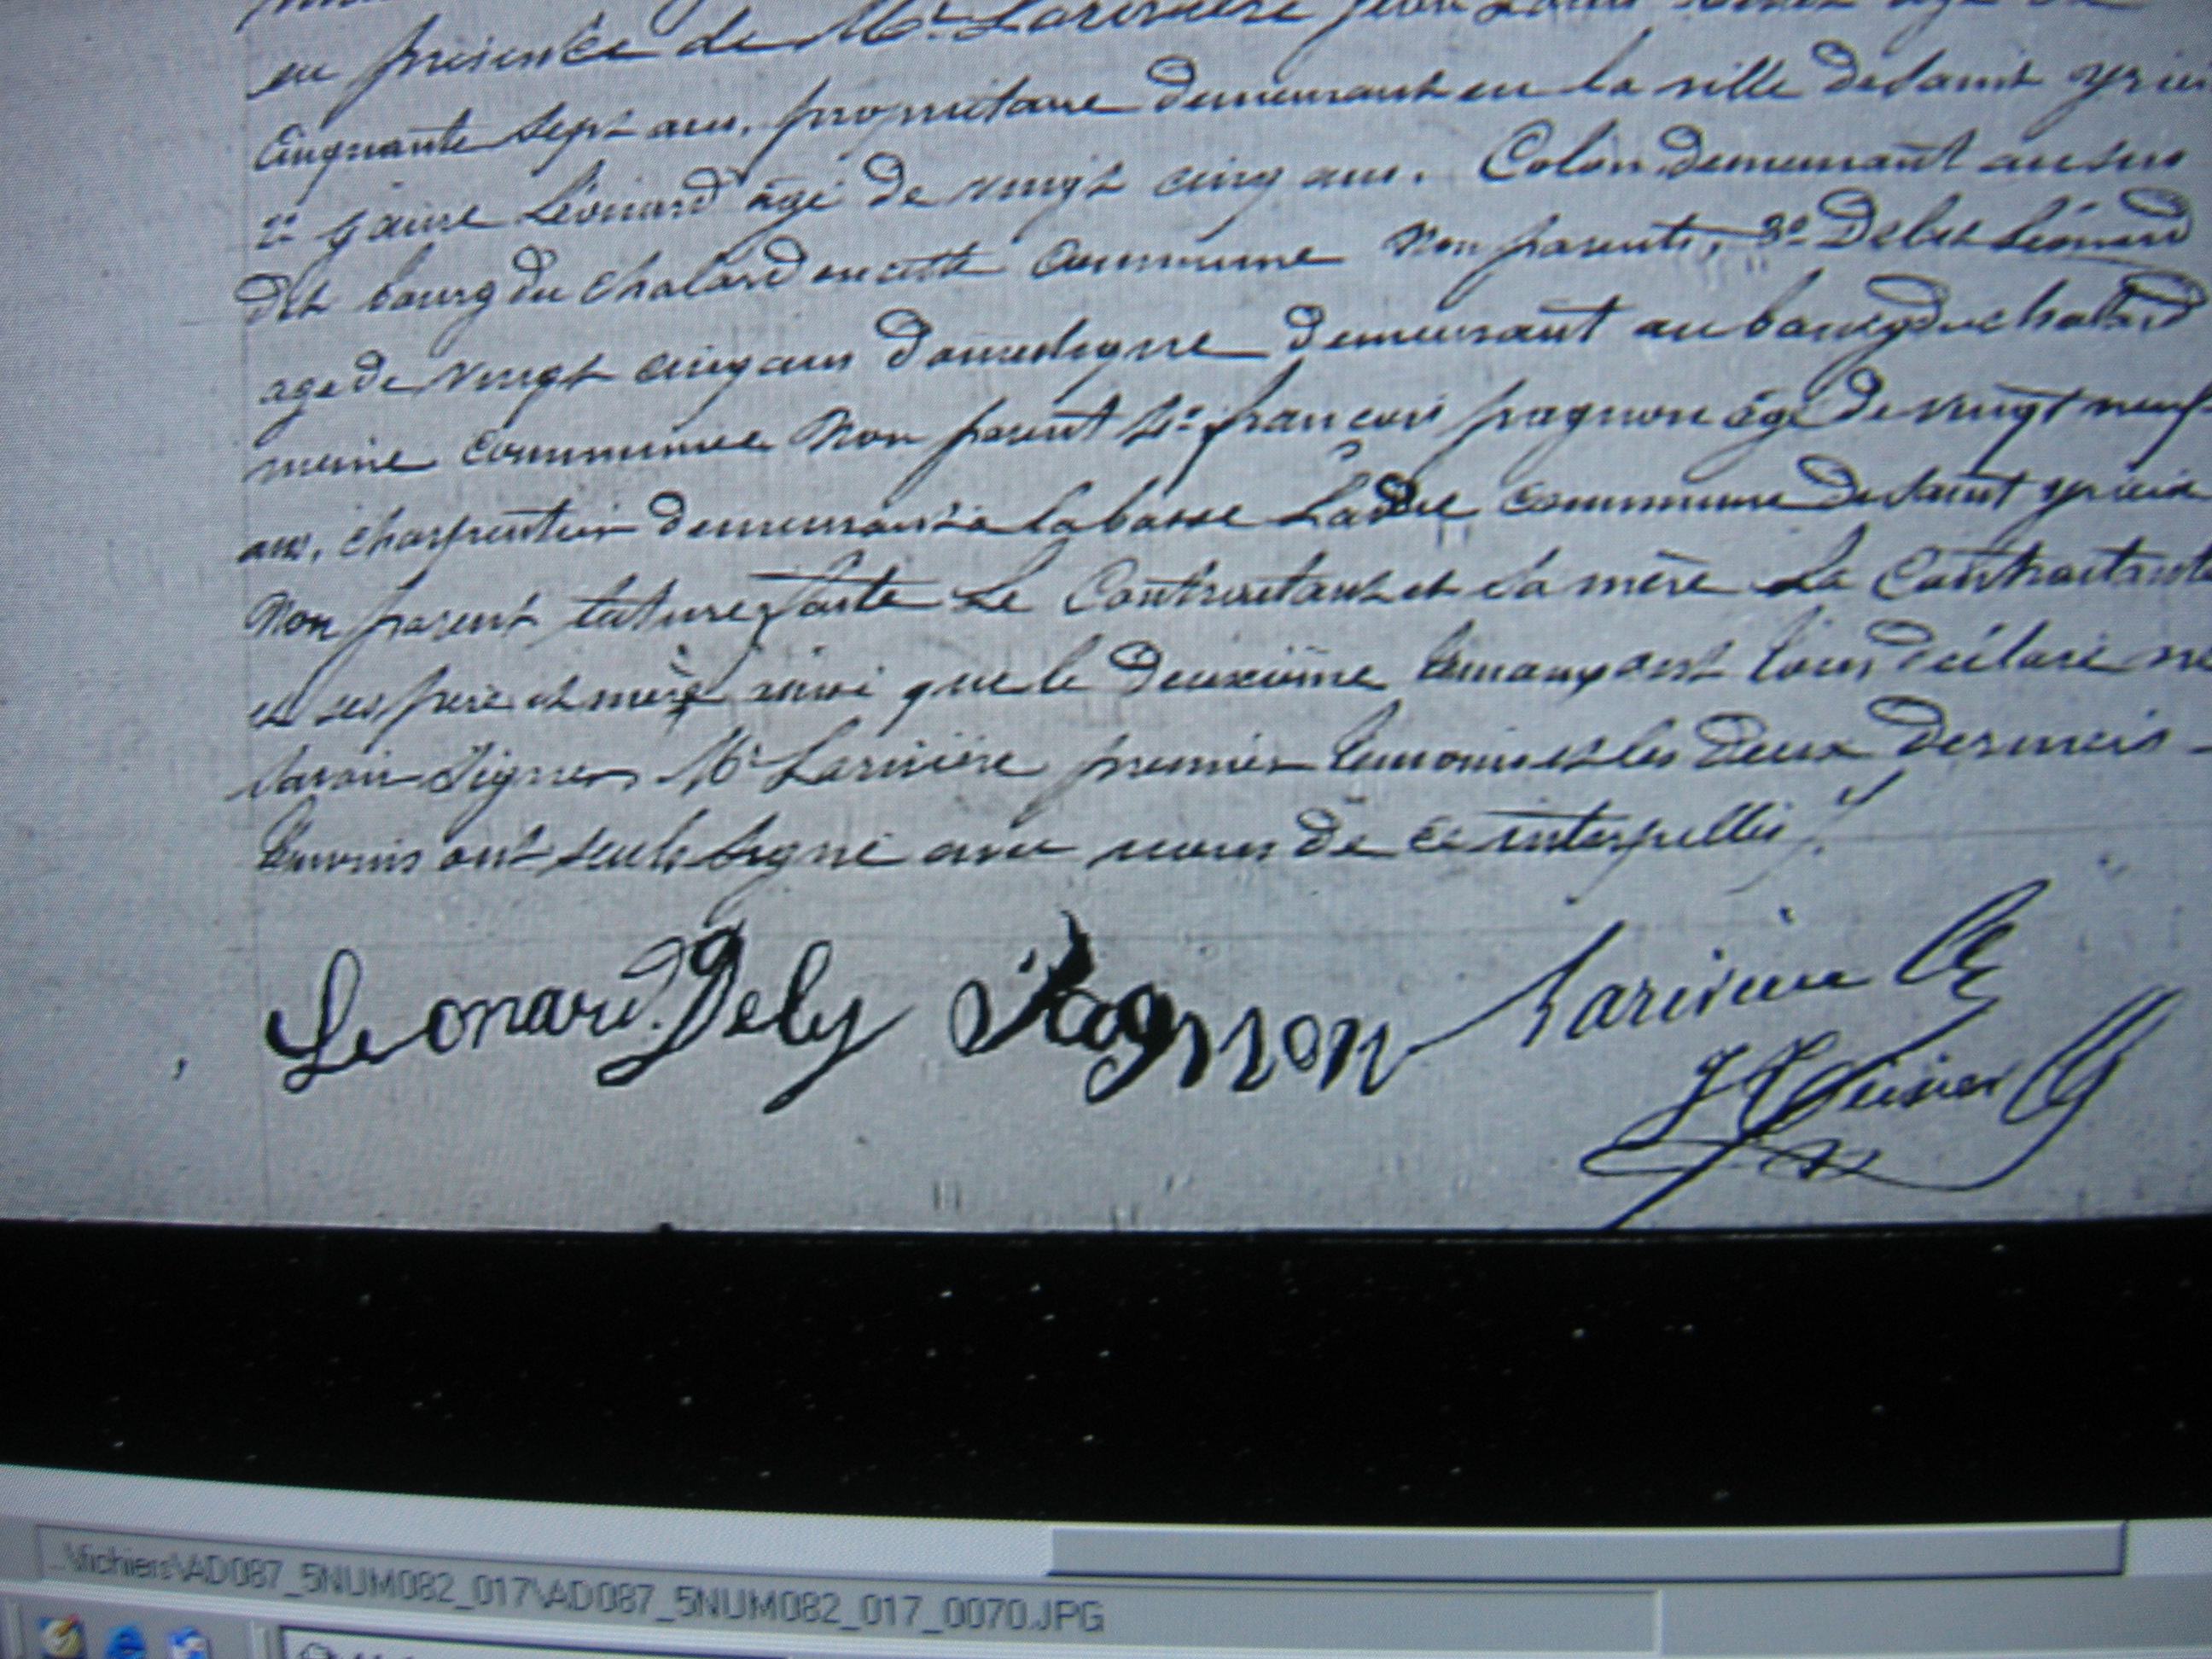 en présence de Mr. Lariviere jean Louis âgé de
Cinquante sept ans, propriétaire demeurant en la ville de Saint yrieix
2° Léonard âgé de vingt cinq ans. Colon demeurant au
dit bourg du Chalard en cette Commune Non parents, 3° Léonard
age de vingt cinq ans Domestique demeurant au bourg du chalard
meme commune Non parent 4° françois pagnon âgé de vingt neuf
ans, charpentier demeurant à la basse commune de Saint yrieix
Non parent lecture faite Le Contractant et Sa mère La Contractante
et ses pere et mère ainsi que le Deuxième temoin ont tous déclaré ne
Savoir Signer, Mr Lariviere premier temoin et les Deux Derniers
temoins ont seuls Signé avec nous de ce interpellés
Leonard Dely Pagnon Lariviere
..\fichiers\AD087_5NUM082_017\AD087_5NUM082_017_0070.JPG